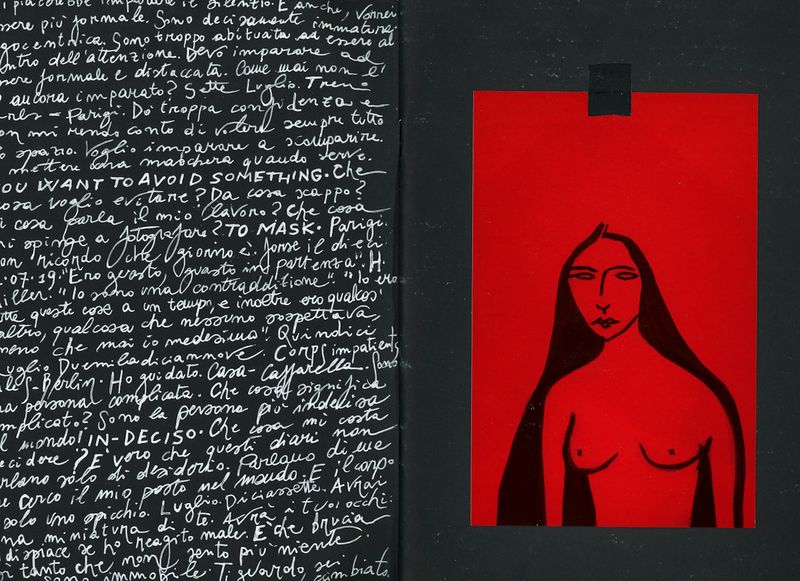 piacerebbe imparare il silenzio. E anche, vorrei
essere più formale. Sono decisamente immatura
egocentrica. Sono troppo abituata ad essere al
centro dell'attenzione. Devo imparare ad
essere formale e distaccata. Come mai non l'
ancora imparato? Sette Luglio. Treno
Arles - Parigi. Do troppa confidenza e
non mi rendo conto di volere sempre tutto
lo spazio. Voglio imparare a scomparire.
mettere una maschera quando serve.
YOU WANT TO AVOID SOMETHING. Che
cosa voglio evitare? Da cosa scappo?
Di cosa parla il mio lavoro? Che cosa
mi spinge a fotografare? TO MASK. Parigi.
Non ricordo che giorno è, forse il dieci
.07.19. "Ero guasto, guasto in partenza". H.
Miller. "Io sono una contraddizione". "Io ero
tutte queste cose a un tempo, e inoltre ero qualcos'
altro, qualcosa che nessuno sospettava,
meno che mai io medesimo". Quindici
Luglio Duemiladiciannove. Corps impatients
Berlin. Ho guidato. Casa Caffarella. Sono
una persona complicata. Che cosa significa
complicato? Sono la persona più indecisa
al mondo! IN-DECISO. Che cosa mi costa
decidere? E' vero che questi diari non
parlano solo di desiderio. Parlano di me
che cerco il mio posto nel mondo. E il corpo
Luglio. Diciassette. Avrai
solo uno spicchio. Avrà i tuoi occhi:
una miniatura di te. E che brucia
Mi dispiace se ho reagito male.
tanto che non sento più niente.
sono immobile. Ti guardo, sei cambiato